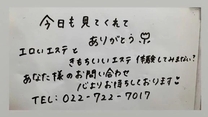 今日も見てくれて
ありがとう
エロいエステと
きもちいいエステ 体験してみません?
あなた様のお問い合わせ
心よりお待ちしております
TEL: 022-722-7017